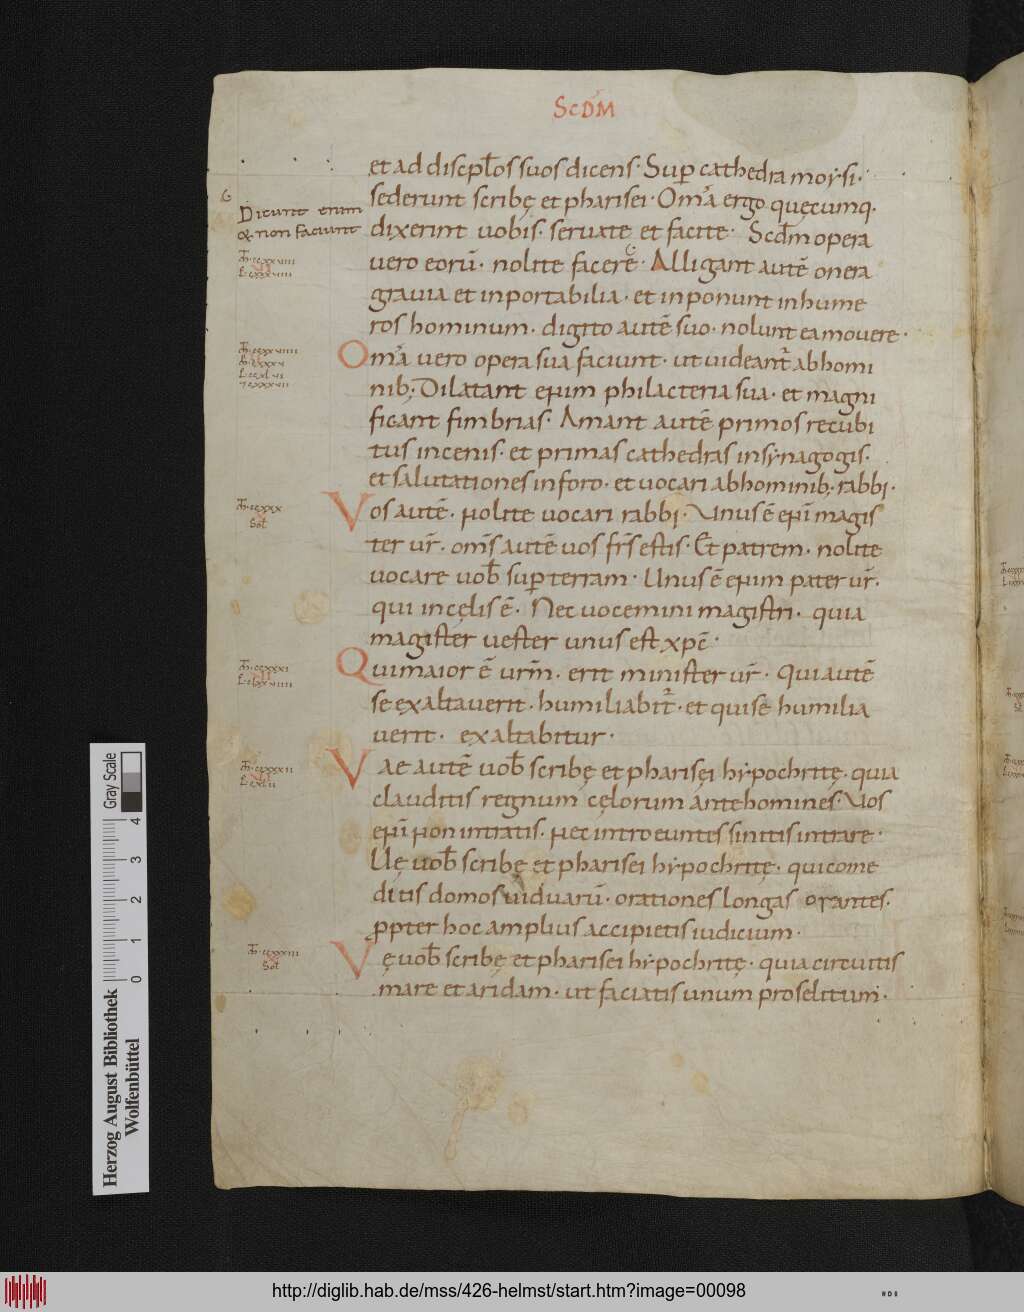 ScDM
et ad discpl̄os suos dicens· Sup̄ cathedra moysi·
sederunt scribę et pharisei· Om̄a ergo quęcumq·
Dicunt enim
& non faciunt
dixerint uobis· seruate et facite· Scdm̄ opera
uero eorū· nolite facere· Alligant autē onera
grauia et inportabilia· et inponunt in hume
ros hominum· digito autē suo· nolunt ea mouere·
Om̄a uero opera sua faciunt· ut uideant̄ ab homi
nib; Dilatant enim philacteria sua· et magni
ficant fimbrias· Amant autē primos recubi
tus in cenis· et primas cathedras in synagogis·
et salutationes in foro· et uocari ab hominib; rabbi·
Vos autē· nolite uocari rabbi· Unus ē eni magis
ter ur̄· oms̄ autē uos frs̄ estis· Et patrem· nolite
uocare uob̄ sup̄ terram· Unus ē enim pater ur̄·
qui in cęlis ē· Nec uocemini magistri· quia
magister uester unus est xpc̄·
Qui maior ē urm̄· erit minister ur̄· Qui autē
se exaltauerit· humiliabit̄· et qui sē humilia
uerit· exaltabitur·
Vae autē uob̄ scribę et pharisęi hypochritę· quia
clauditis regnum cęlorum ante homines· Uos
eni non intratis· nec introeuntes sinitis intrare·
Uę uob̄ scribę et pharisei hypochritę· qui come
ditis domos uiduarū· orationes longas orantes·
ppter hoc amplius accipietis iudicium·
Vę uob̄ scribę et pharisei hypochritę· quia circuitis
mare et aridam· ut faciatis unum proselitum·
Gray Scale
0 1 2 3 4
Herzog August Bibliothek
Wolfenbüttel
http://diglib.hab.de/mss/426-helmst/start.htm?image=00098